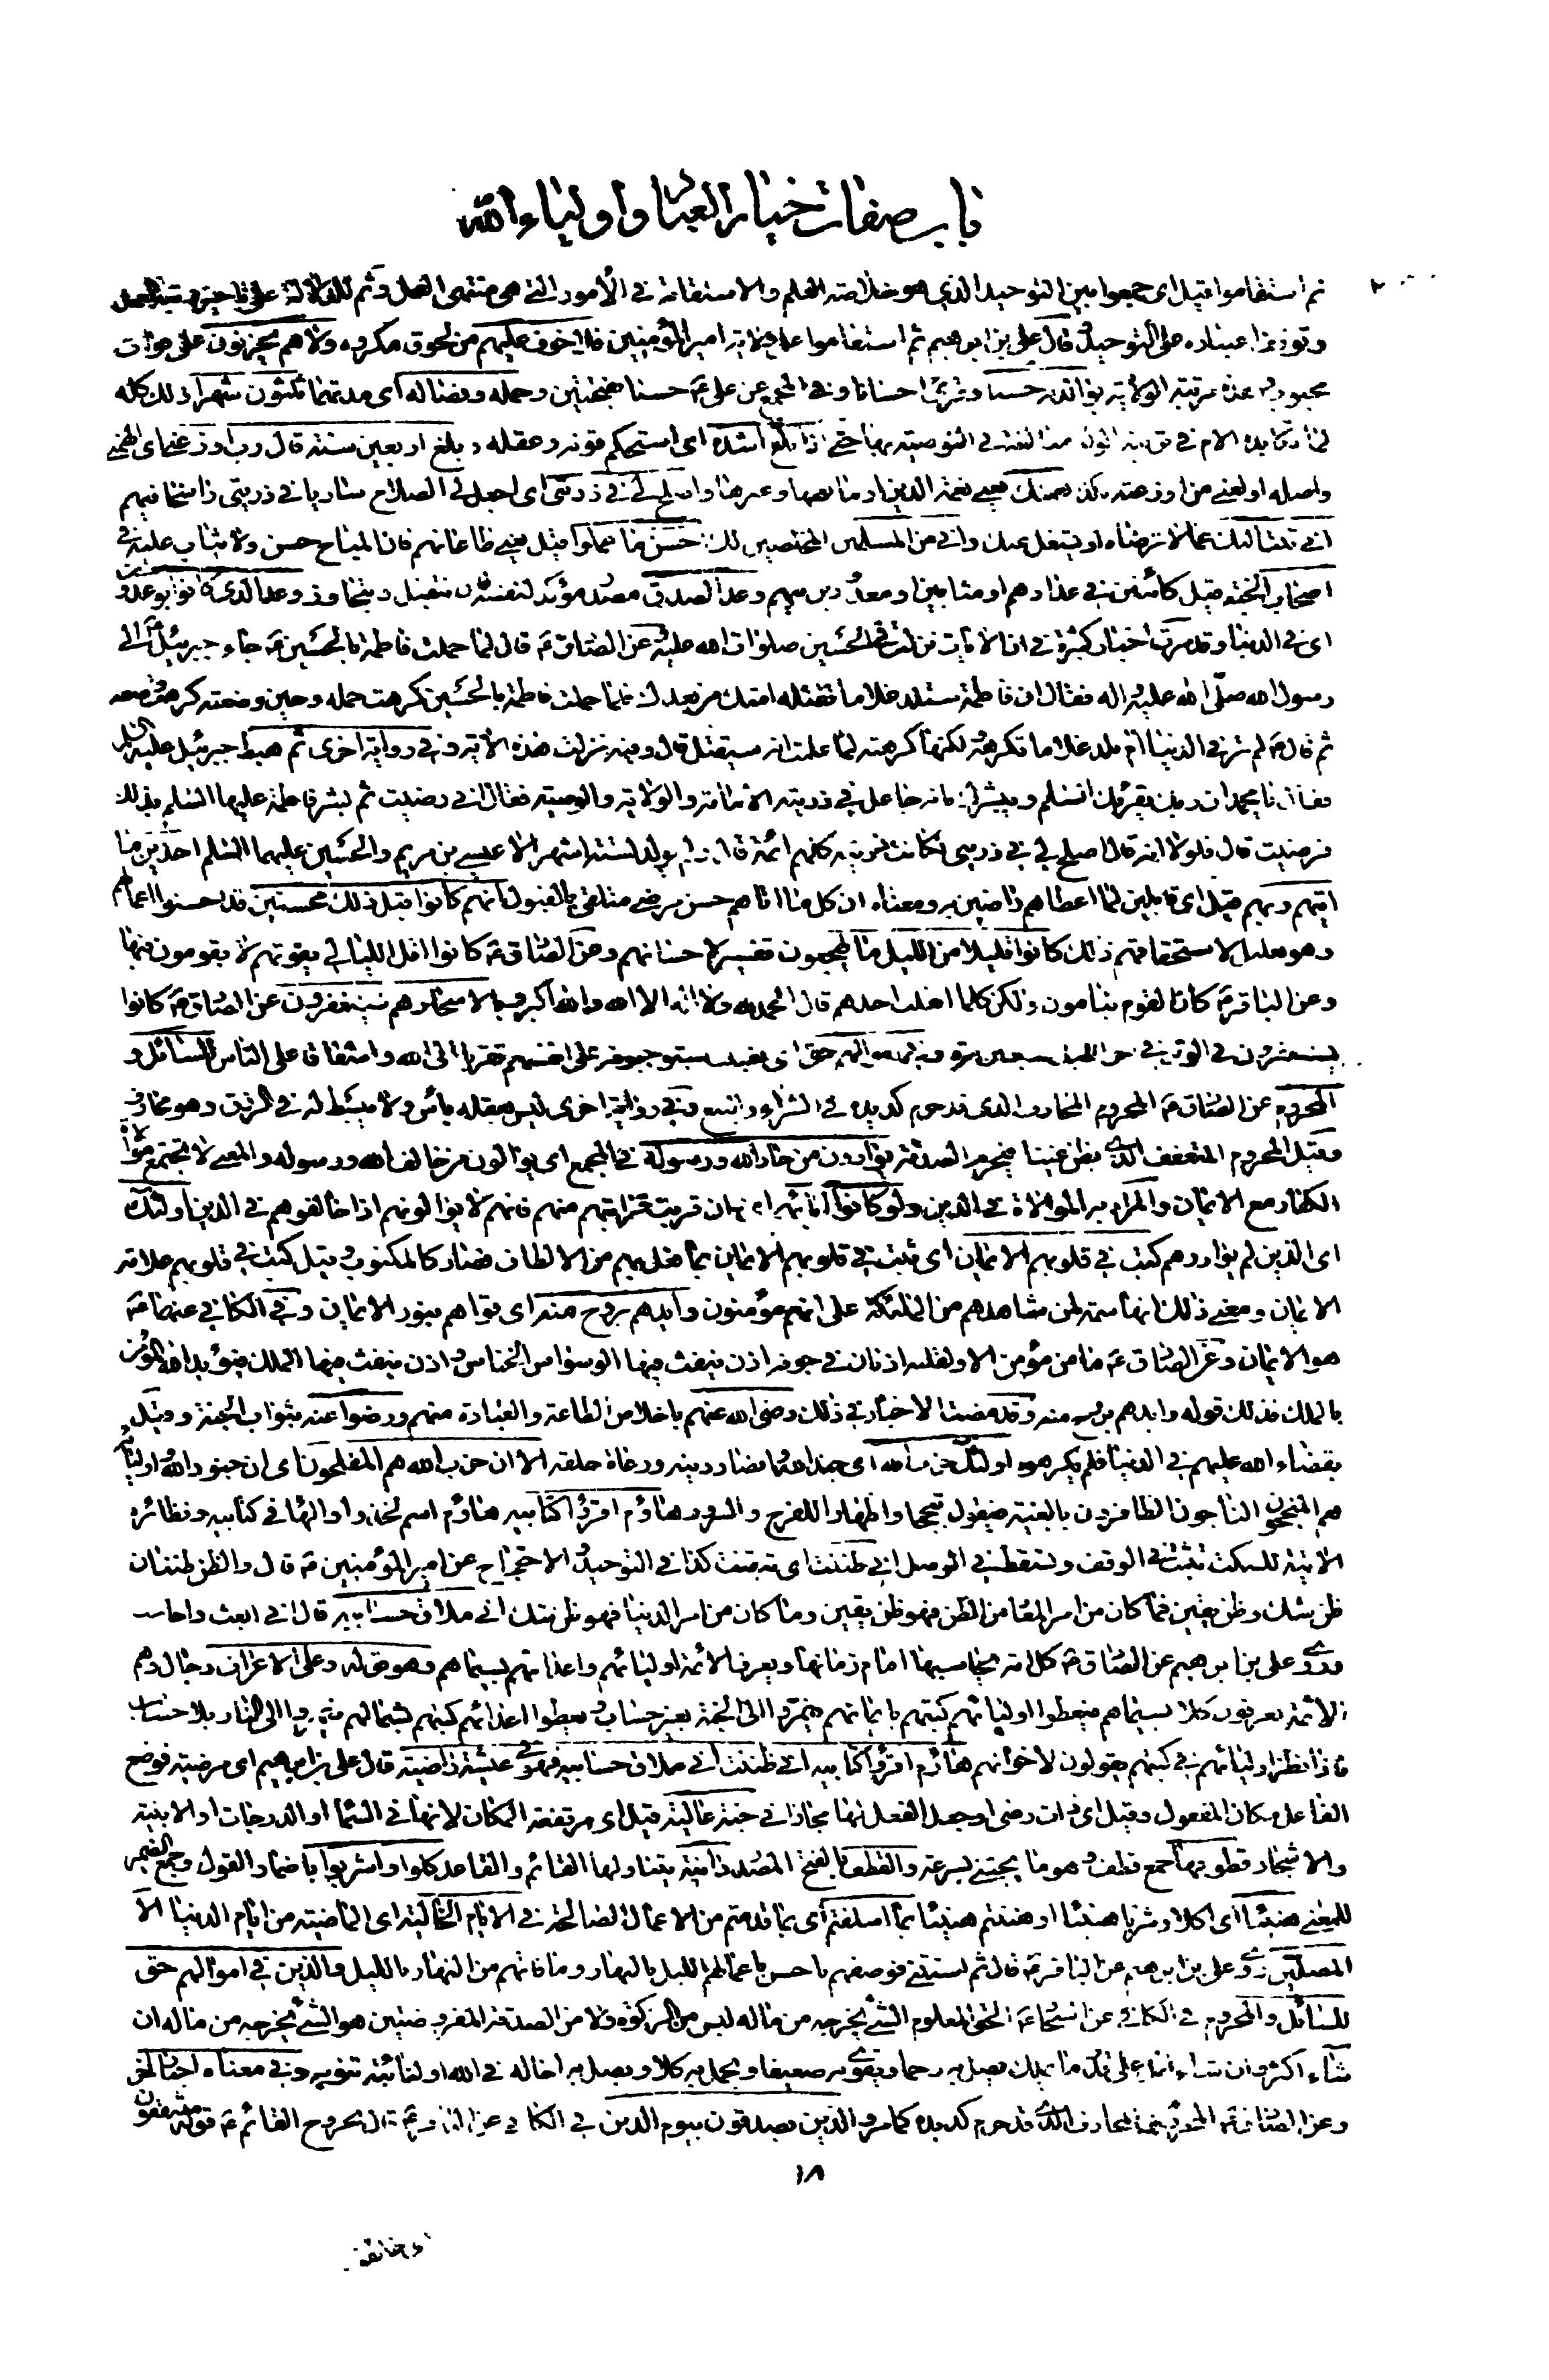 باب صفات خيار العباد واولياء الله
ثم استقاموا قيل اى جمعوا بين التوحيد الذى هو خلاصة العلم والاستقامة فى الأمور التى هى منتهى العمل وثم للدلالة على تاخير رتبة العمل
وتوقف اعتباره على التوحيد وقال على بن ابرهيم ثم استقاموا على ولاية امير المؤمنين فلا خوف عليهم من لحوق مكروه ولا هم يحزنون على فوات
محبوب حسنا وقرئ احسانا وفى المجمع عن على ع حسنا بفتحتين وحمله وفصاله اى مدتهما ثلثون شهرا ذلك كله
لما تكابده الام فى تربية الولد مبالغة فى التوصية بها حتى اذا بلغ اشده اى استحكم قوته وعقله وبلغ اربعين سنة قال رب اوزعنى اى الهمنى
واصله اولعنى من اوزعته بكذا نعمتك يعنى نعمة الدين او ما يعمها وغيرها واصلح لى فى ذريتى اى اجعل لى الصلاح ساريا فى ذريتى راسخا فيهم
انى تبت اليك عما لا ترضاه او يشغل عنك وانى من المسلمين المخلصين لك احسن ما عملوا قيل يعنى طاعاتهم فان المباح حسن ولا يثاب عليه فى
اصحاب الجنة قيل كائنين فى عدادهم او مثابين او معدودين فيهم وعد الصدق مصدر مؤكد لنفسه فان يتقبل ويتجاوز وعد الذى كانوا يوعدون
اى فى الدنيا وقد مرت اخبار كثيرة فى ان الايات نزلت فى الحسين صلوات الله عليه عن الصادق ع قال لما حملت فاطمة بالحسين ع جاء جبرئيل الى
رسول الله صلى الله عليه واله فقال ان فاطمة ستلد غلاما تقتله امتك من بعدك فلما حملت فاطمة بالحسين كرهت حمله وحين وضعته كرهت وضعه
ثم قال ع لم تر فى الدنيا ام تلد غلاما تكرهه لكنها كرهته لما علمت انه سيقتل قال وفيه نزلت هذه الاية وفى رواية اخرى ثم هبط جبرئيل عليه السلم
فقال يا محمد ان ربك يقرئك السلم ويبشرك بانه جاعل فى ذريته الامامة والولاية والوصية فقال انى رضيت ثم بشر فاطمة عليها السلم بذلك
فرضيت قال فلولا انه قال اصلح لى فى ذريتى لكانت ذريته كلهم ائمة قال ولم يولد لستة اشهر الا عيسى بن مريم والحسين عليهما السلم اخذين ما
اتيهم ربهم قيل اى قابلين لما اعطاهم راضين به ومعناه ان كل ما اتاهم حسن مرضى متلقى بالقبول انهم كانوا قبل ذلك محسنين قد احسنوا اعمالهم
وهو تعليل لاستحقاقهم ذلك كانوا قليلا من الليل ما يهجعون تفسير لاحسانهم وعن الصادق ع كانوا اقل الليالى يفوتهم لا يقومون فيها
وعن الباقر ع كان القوم ينامون ولكن كلما انقلب احدهم قال الحمد لله ولا اله الا الله والله اكبر وبالاسحار هم يستغفرون عن الصادق ع كانوا
يستغفرون فى الوتر فى اخر الليل سبعين مرة وفى اموالهم حق اى نصيب يستوجبونه على انفسهم تقربا الى الله واشفاقا على الناس للسائل و
المحروم عن الصادق ع المحروم المحارف الذى قد حرم كد يده فى الشراء والبيع وفى رواية اخرى ليس بعقله باس ولا يبسط له فى الرزق وهو محارف
وقيل المحروم المتعفف الذى يظن غنيا فيحرم الصدقة يوادون من حاد الله ورسوله فى المجمع اى يوالون من خالف الله ورسوله والمعنى لا يجتمع موالاة
الكفار مع الايمان والمراد به الموالاة فى الدين ولو كانوا اباءهم اى وان قربت قرابتهم منهم فانهم لا يوالونهم اذا خالفوهم فى الدين اولئك
اى الذين لم يوادوهم كتب فى قلوبهم الايمان اى ثبت فى قلوبهم الايمان بما فعل بهم من الالطاف فصار كالمكتوب وقيل كتب فى قلوبهم علامة
الايمان ومعنى ذلك انها سمة لمن شاهدهم من الملئكة على انهم مؤمنون وايدهم بروح منه اى قواهم بنور الايمان وفى الكافى عنهما ع
هو الايمان وعن الصادق ع ما من مؤمن الا ولقلبه اذنان فى جوفه اذن ينفث فيها الوسواس الخناس واذن ينفث فيها الملك فيؤيد الله المؤمن
بالملك فذلك قوله وايدهم بروح منه وقد مضت الاخبار فى ذلك رضى الله عنهم باخلاص الطاعة والعبادة منهم ورضوا عنه بثواب الجنة وقيل
بقضاء الله عليهم فى الدنيا فلم يكرهوه اولئك حزب الله اى جند الله وانصار دينه ودعاة خلقه الا ان حزب الله هم المفلحون اى ان جنود الله اولياؤه
هم المنجحون الناجون الظافرون بالبغية فيقول تبجحا واظهارا للفرح والسرور هاؤم اقرؤا كتابيه هاؤم اسم لخذوا والهاء فى كتابيه ونظائره
الاتية للسكت تثبت فى الوقف وتسقط فى الوصل انى ظننت اى تيقنت كذا فى التوحيد والاحتجاج عن امير المؤمنين ع قال والظن ظنان
ظن شك وظن يقين فما كان من امر المعاد من الظن فهو ظن يقين وما كان من امر الدنيا فهو ظن شك انى ملاق حسابيه قال انى ابعث واحاسب
وروى على بن ابرهيم عن الصادق ع كل امة يحاسبها امام زمانها ويعرف الائمة اولياءهم واعداءهم بسيماهم وهو قوله وعلى الاعراف رجال وهم
الائمة يعرفون كلا بسيماهم فيعطوا اولياءهم كتبهم بايمانهم فيمروا الى الجنة بغير حساب ويعطوا اعداءهم كتبهم بشمالهم فيمروا الى النار بلا حساب
فاذا نظر اولياءهم فى كتبهم يقولون لاخوانهم هاؤم اقرؤا كتابيه انى ظننت انى ملاق حسابيه فهو فى عيشة راضية قال على بن ابراهيم اى مرضية فوضع
الفاعل مكان المفعول وقيل اى ذات رضى او جعل الفعل لها مجازا فى جنة عالية قيل اى مرتفعة المكان لانها فى السماء او الدرجات او الابنية
والاشجار قطوفها جمع قطف وهو ما يجتنى بسرعة والقطف بالفتح المصدر دانية يتناولها القائم والقاعد كلوا واشربوا باضمار القول وجمع الضمير
للمعنى هنيئا اى اكلا وشربا هنيئا او هنئتم هنيئا بما اسلفتم اى بما قدمتم من الاعمال الصالحة فى الايام الخالية اى الماضية من ايام الدنيا الا
المصلين روى على بن ابرهيم عن الباقر ع قال ثم استثنى فوصفهم باحسن اعمالهم الليل بالنهار وما فاتهم من النهار بالليل والذين فى اموالهم حق
للسائل والمحروم فى الكافى عن السجاد ع الحق المعلوم الشئ يخرجه من ماله ليس من الزكوة ولا من الصدقة المفروضتين هو الشئ يخرجه من ماله ان
شاء اكثر وان شاء اقل على قدر ما يملك يصل به رحما ويقوى به ضعيفا ويحمل به كلا ويصل به اخا له فى الله او لنائبة تنوبه وفى معناه اخبار اخر
وعن الصادق ع المحروم المحارف الذى قد حرم كد يده كما مر والذين يصدقون بيوم الدين فى الكافى عن الباقر ع قال بخروج القائم ع قوله مشفقون
١٨